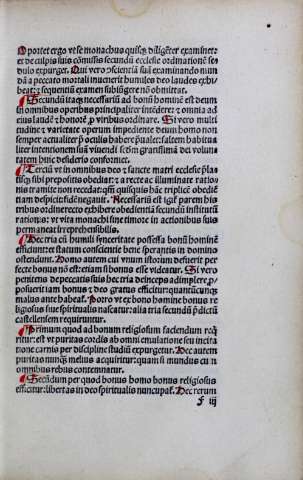 Oportet ergo vt se monachus quisq₃ diligēter examinet:
et de culpis suis cōmissis secundū ecclesie ordinationē se
dulo expurget. Qui vero ↄscientiā suā examinando mun
dā a peccato mortali inuenerit humiles deo laudes exhi
beat: ⁊ sequentiū examen subiūgere nō obmittat.
Secundū itaq₃ necessariū ad bonū hominē est deum
in omnibus operibus principaliter intēdere: ⁊ omnia ad
eius laudē ⁊ honorē ꝓ viribus ordinare. Si vero multi
tudine ⁊ varietate operum impediente deum homo non
semper actualiter p̄ oculis habere p̄ualet: saltem habitua
liter intentionem suā viuendi scdm gratissimā dei volun
tatem huic desiderio conformet.
Terciū vt in omnibus deo ⁊ sancte matri ecclesie p̄latis
q₃ sibi prepositis obediat: ⁊ a recte ac illuminate ratio
nis tramite non recedat: qm̄ quisquis hāc triplicē obediē
tiam despicit fidē negauit. Necessariū est igit᷑ parem his
tribus ordine recto exhibere obedientiā secundū institutū
rationis: vt vita monachi sine timore in actionibus suis
permaneat irreprehensibilis.
Hec tria cū humili synceritate possessa bonū hominē
efficiunt: et statum conscientie bene sperantis in domino
ostendunt. Homo autem cui vnum istorum defuerit per
fecte bonus nō est: etiam si bonus esse videatur. Si vero
penitens de peccatis suis hec tria deinceps adimplere ꝓ
posuerit iam bonus ⁊ deo gratus efficitur: quantūcunq₃
malus ante habeat᷑. Porro vt ex bono homine bonus re
ligiosus siue spiritualis nascatur: alia tria secundū p̄dictū
castellensem requiruntur.
Primum quod ad bonum religiosum faciendum req̄
ritur: est vt puritas cordis ab omni emulatione seu incita
tione carnis per discipline studiū expurgetur. Hec autem
puritas nunq̄ melius acquiritur: quam si mundus cū
omnibus rebus contemnatur.
Secūdum per quod bonus homo bonus religiosus
efficitur: libertas in deo spiritualis nuncupat᷑. Hec rerum
f iij